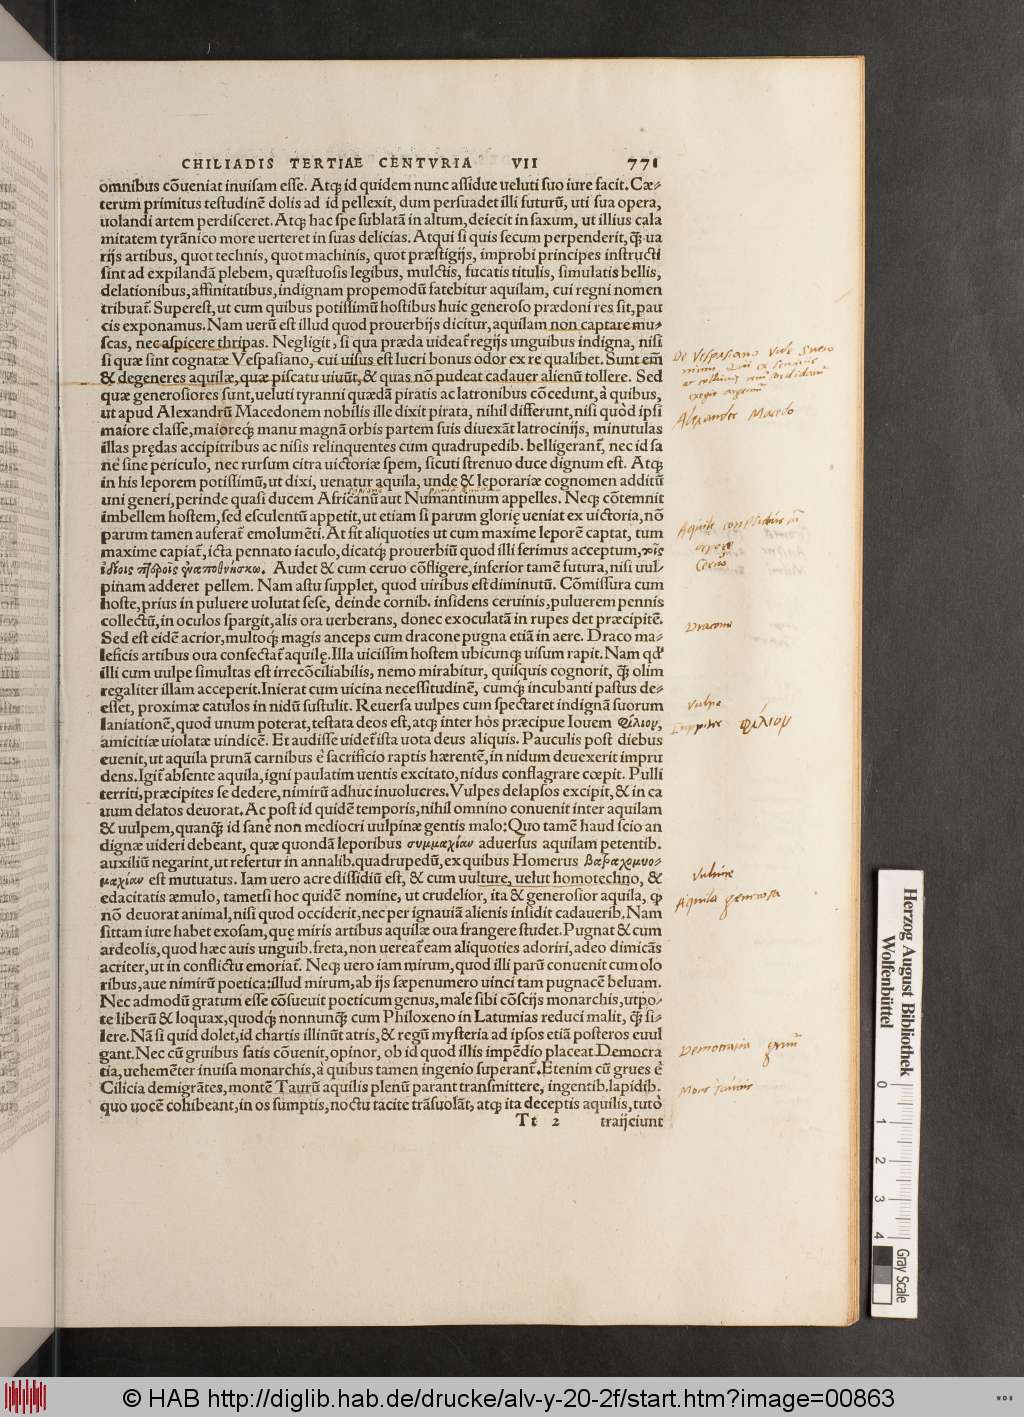 CHILIADIS TERTIAE CENTVRIA VII 771
omnibus cōueniat inuisam esse. Atq; id quidem nunc assidue ueluti suo iure facit. Cæ-
terum primitus testudinē dolis ad id pellexit, dum persuadet illi futurū, uti sua opera,
uolandi artem perdisceret. Atq; hac spe sublatā in altum, deiecit in saxum, ut illius cala
mitatem tyrānico more uerteret in suas delicias. Atqui si quis secum perpenderit, q̄; ua
rijs artibus, quot technis, quot machinis, quot præstigijs, improbi principes instructi
sint ad expilandā plebem, quæstuosis legibus, mulctis, fucatis titulis, simulatis bellis,
delationibus, affinitatibus, indignam propemodū fatebitur aquilam, cui regni nomen
tribuat̄. Superest, ut cum quibus potissimū hostibus huic generoso prædoni res sit, pau
cis exponamus. Nam uerū est illud quod prouerbijs dicitur, aquilam non captare mu-
scas, nec aspicere thripas. Negligit, si qua præda uideat̄ regijs unguibus indigna, nisi
si quæ sint cognatæ Vespasiano, cui uisus est lucri bonus odor ex re qualibet. Sunt em̄
& degeneres aquilæ, quæ piscatu uiuūt, & quas nō pudeat cadauer alienū tollere. Sed
quæ generosiores sunt, ueluti tyranni quædā piratis ac latronibus cōcedunt, à quibus,
ut apud Alexandrū Macedonem nobilis ille dixit pirata, nihil differunt, nisi quòd ipsi
maiore classe, maioreq; manu magnā orbis partem suis diuexāt latrocinijs, minutulas
illas prędas accipitribus ac nisis relinquentes cum quadrupedib. belligerant̄, nec id sa
nē sine periculo, nec rursum citra uictoriæ spem, sicuti strenuo duce dignum est. Atq;
in his leporem potissimū, ut dixi, uenatur aquila, unde & leporariæ cognomen additū
uni generi, perinde quasi ducem Africanū aut Numantinum appelles. Neq; cōtemnit
imbellem hostem, sed esculentū appetit, ut etiam si parum glorię ueniat ex uictoria, nō
parum tamen auferat̄ emolumēti. At fit aliquoties ut cum maxime leporē captat, tum
maxime capiat̄, icta pennato iaculo, dicatq; prouerbiū quod illi ferimus acceptum, τοῖς
ἰδίοις πτεροῖς ἐναποθνήσκω. Audet & cum ceruo cōfligere, inferior tamē futura, nisi uul-
pinam adderet pellem. Nam astu supplet, quod uiribus est diminutū. Cōmissura cum
hoste, prius in puluere uolutat sese, deinde cornib. insidens ceruinis, puluerem pennis
collectū, in oculos spargit, alis ora uerberans, donec exoculatā in rupes det præcipitē.
Sed est eidē acrior, multoq; magis anceps cum dracone pugna etiā in aere. Draco ma-
leficis artibus oua consectat̄ aquilę. Illa uicissim hostem ubicunq; uisum rapit. Nam qd'
illi cum uulpe simultas est irrecōciliabilis, nemo mirabitur, quisquis cognorit, q̄; olim
regaliter illam acceperit. Inierat cum uicina necessitudinē, cumq; incubanti pastus de-
esset, proximæ catulos in nidū sustulit. Reuersa uulpes cum spectaret indignā suorum
laniationē, quod unum poterat, testata deos est, atq; inter hos præcipue Iouem Φίλιον,
amicitiæ uiolatæ uindicē. Et audisse uidet̄ ista uota deus aliquis. Pauculis post diebus
euenit, ut aquila prunā carnibus è sacrificio raptis hærentē, in nidum deuexerit impru
dens. Igit̄ absente aquila, igni paulatim uentis excitato, nidus conflagrare cœpit. Pulli
territi, præcipites se dedere, nimirū adhuc inuolucres. Vulpes delapsos excipit, & in ca
uum delatos deuorat. Ac post id quidē temporis, nihil omnino conuenit inter aquilam
& uulpem, quanq; id sanē non mediocri uulpinæ gentis malo: Quo tamē haud scio an
dignæ uideri debeant, quæ quondā leporibus συμμαχίαν aduersus aquilam petentib.
auxiliū negarint, ut refertur in annalib. quadrupedū, ex quibus Homerus βατραχομυο-
μαχίαν est mutuatus. Iam uero acre dissidiū est, & cum uulture, uelut homotechno, &
edacitatis æmulo, tametsi hoc quidē nomine, ut crudelior, ita & generosior aquila, q;
nō deuorat animal, nisi quod occiderit, nec per ignauiā alienis insidit cadauerib. Nam
sittam iure habet exosam, quę miris artibus aquilæ oua frangere studet. Pugnat & cum
ardeolis, quod hæc auis unguib. freta, non uereat̄ eam aliquoties adoriri, adeo dimicās
acriter, ut in conflictu emoriat̄. Neq; uero iam mirum, quod illi parū conuenit cum olo
ribus, aue nimirū poetica: illud mirum, ab ijs sæpenumero uinci tam pugnacē beluam.
Nec admodū gratum esse cōsueuit poeticum genus, male sibi cōscijs monarchis, utpo-
te liberū & loquax, quodq; nonnunq; cum Philoxeno in Latumias reduci malit, q̄; si-
lere. Nā si quid dolet, id chartis illinūt atris, & regū mysteria ad ipsos etiā posteros euul
gant. Nec cū gruibus satis cōuenit, opinor, ob id quod illis impēdio placeat Democra
tia, uehemēter inuisa monarchis, à quibus tamen ingenio superant̄. Etenim cū grues è
Cilicia demigrātes, montē Taurū aquilis plenū parant transmittere, ingentib. lapidib.
quo uocē cohibeant, in os sumptis, noctu tacite trāsuolāt, atq; ita deceptis aquilis, tutò
Tt 2 traijciunt
De Vespasiano vide Sueto
Alexander Macedo
Ceruo
Dracone
Vulpe
Iuppiter Φίλιον
Vulture
Aquila generosa
Democratia
Mons Taurus
Herzog August Bibliothek
Wolfenbüttel
0 1 2 3 4
Gray Scale
© HAB http://diglib.hab.de/drucke/alv-y-20-2f/start.htm?image=00863